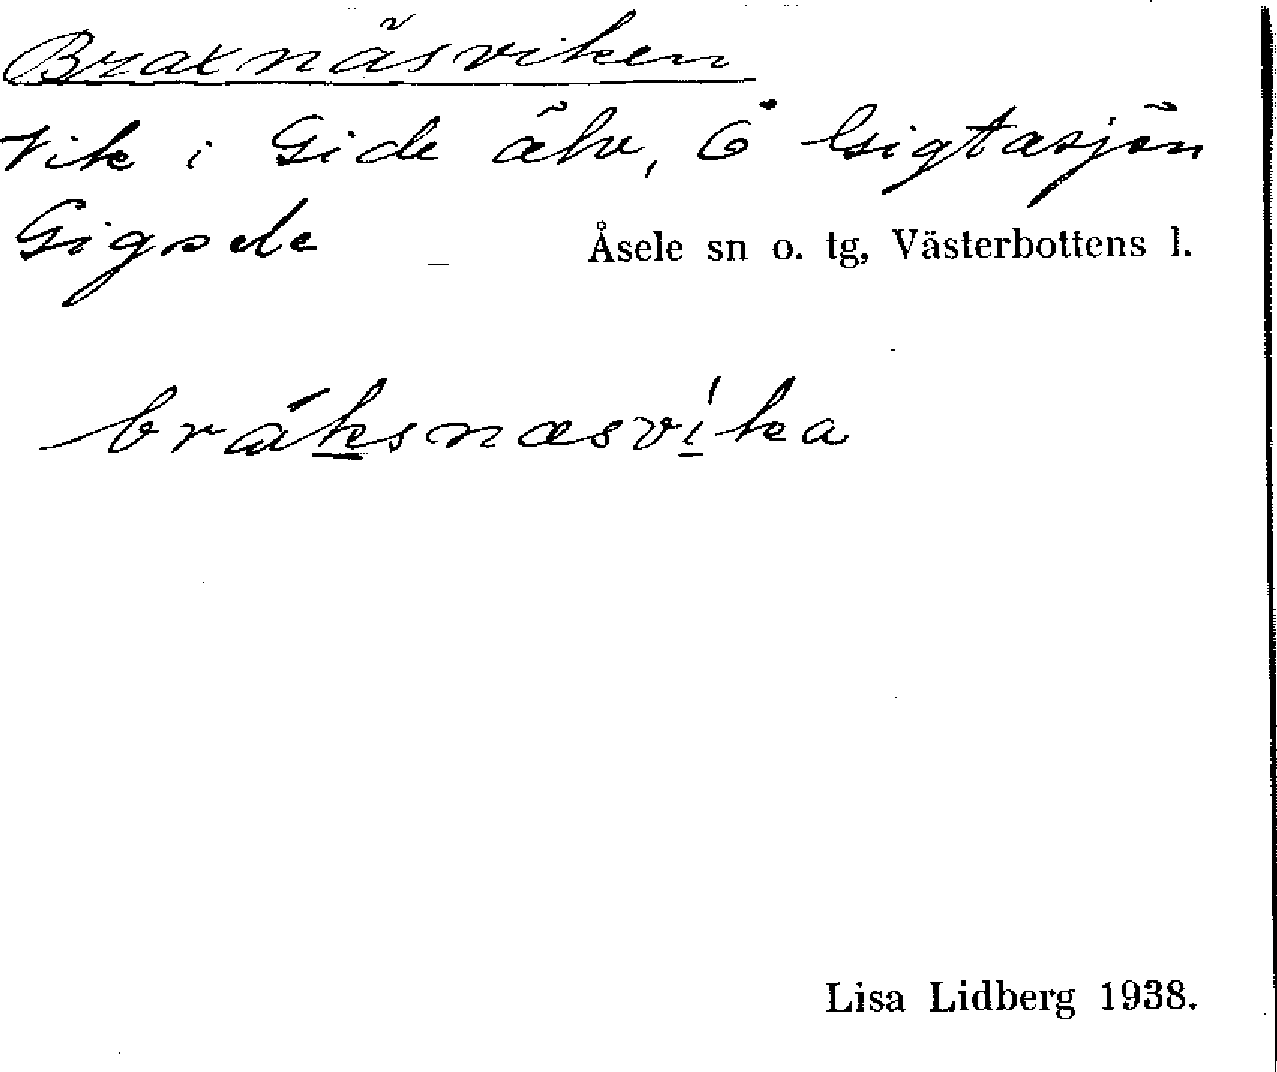 Braxnäsviken
Vik i Gide älv, Ö Gigtasjön
Gigsele Åsele sn o. tg, Västerbottens l.
bráksnæsvíka
Lisa Lidberg 1938.